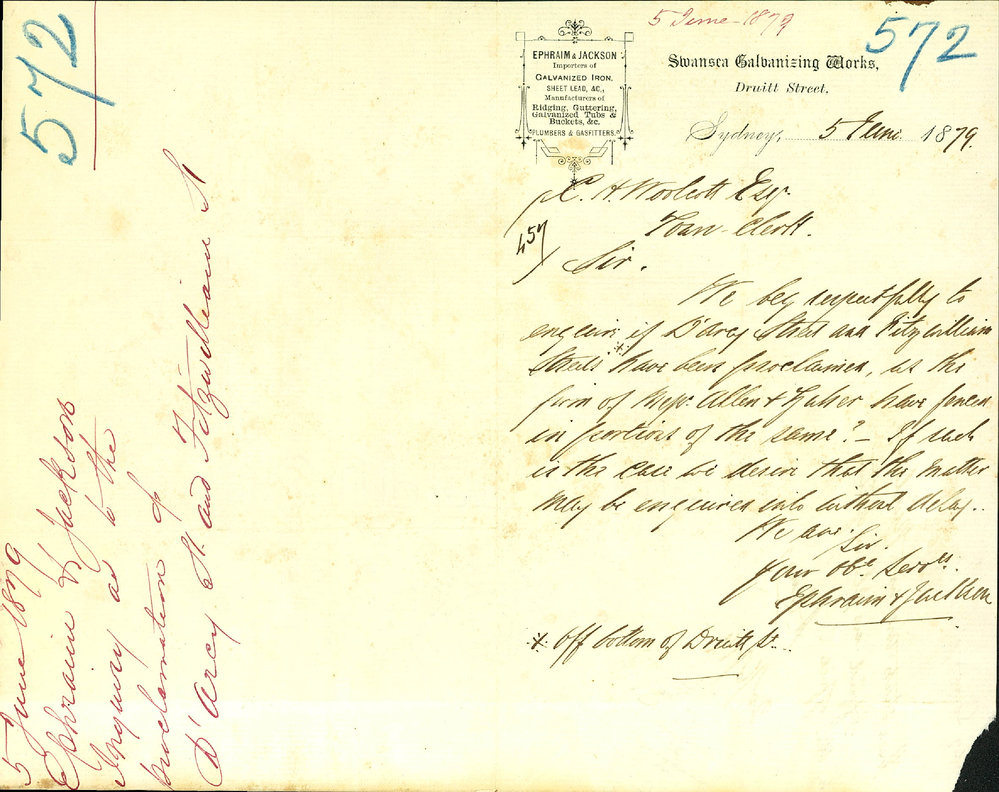 572
5 June 1879
Ephraim & Jackson
Inquiry as to the
proclamation of
D'Arcy St. and Fitzwilliam St
5 June 1879
572
EPHRAIM & JACKSON
Importers of
GALVANIZED IRON,
SHEET LEAD, &C.,
Manufacturers of
Ridging, Guttering,
Galvanized Tubs &
Buckets, &c.
PLUMBERS & GASFITTERS.
Swansea Galvanizing Works,
Druitt Street,
Sydney, 5 June 1879.
C. H. Woolcott Esq
Town Clerk.
457
Sir.
We beg respectfully to
enquire if D'arcy Street and Fitzwilliam
Streets * have been proclaimed, as the
firm of Messrs. Allen & have fenced
in portions of the same? - If such
is the case we desire that the matter
may be enquired into without delay.
We are
Sir.
Your Obt. Servts.
Ephraim & Jackson
* Off bottom of Druitt St.